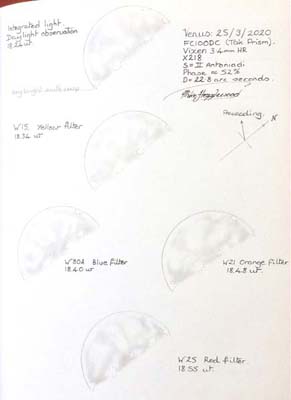 Integrated light
Daylight observation
Venus: 25/3/2020
FC100DC (Tak Prism).
Vixen 3.4mm HR
X218
S = II Antoniadi
Phase ≈ 52%
D = 22.8 arc seconds.
Preceding.
N
W15 Yellow filter
18.34 ut
W80A Blue filter
18.40 ut
W21 Orange filter
18.48 ut.
W25 Red filter.
18.55 ut.